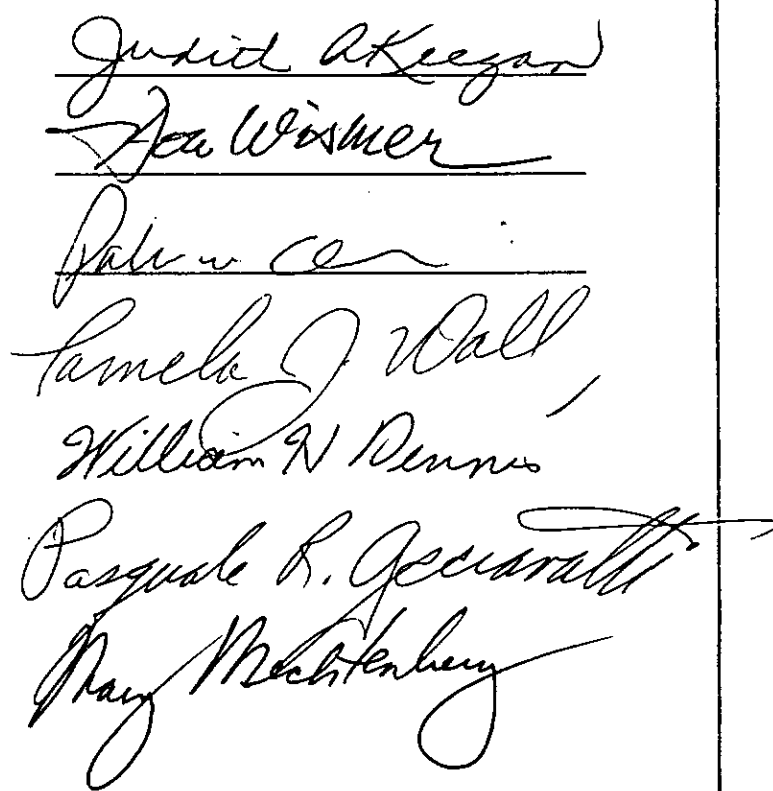 Judith A Keegan
Don Wismer
Pamela J. Wall
William N Dennis
Pasquale R.
Mary Mechtenberg